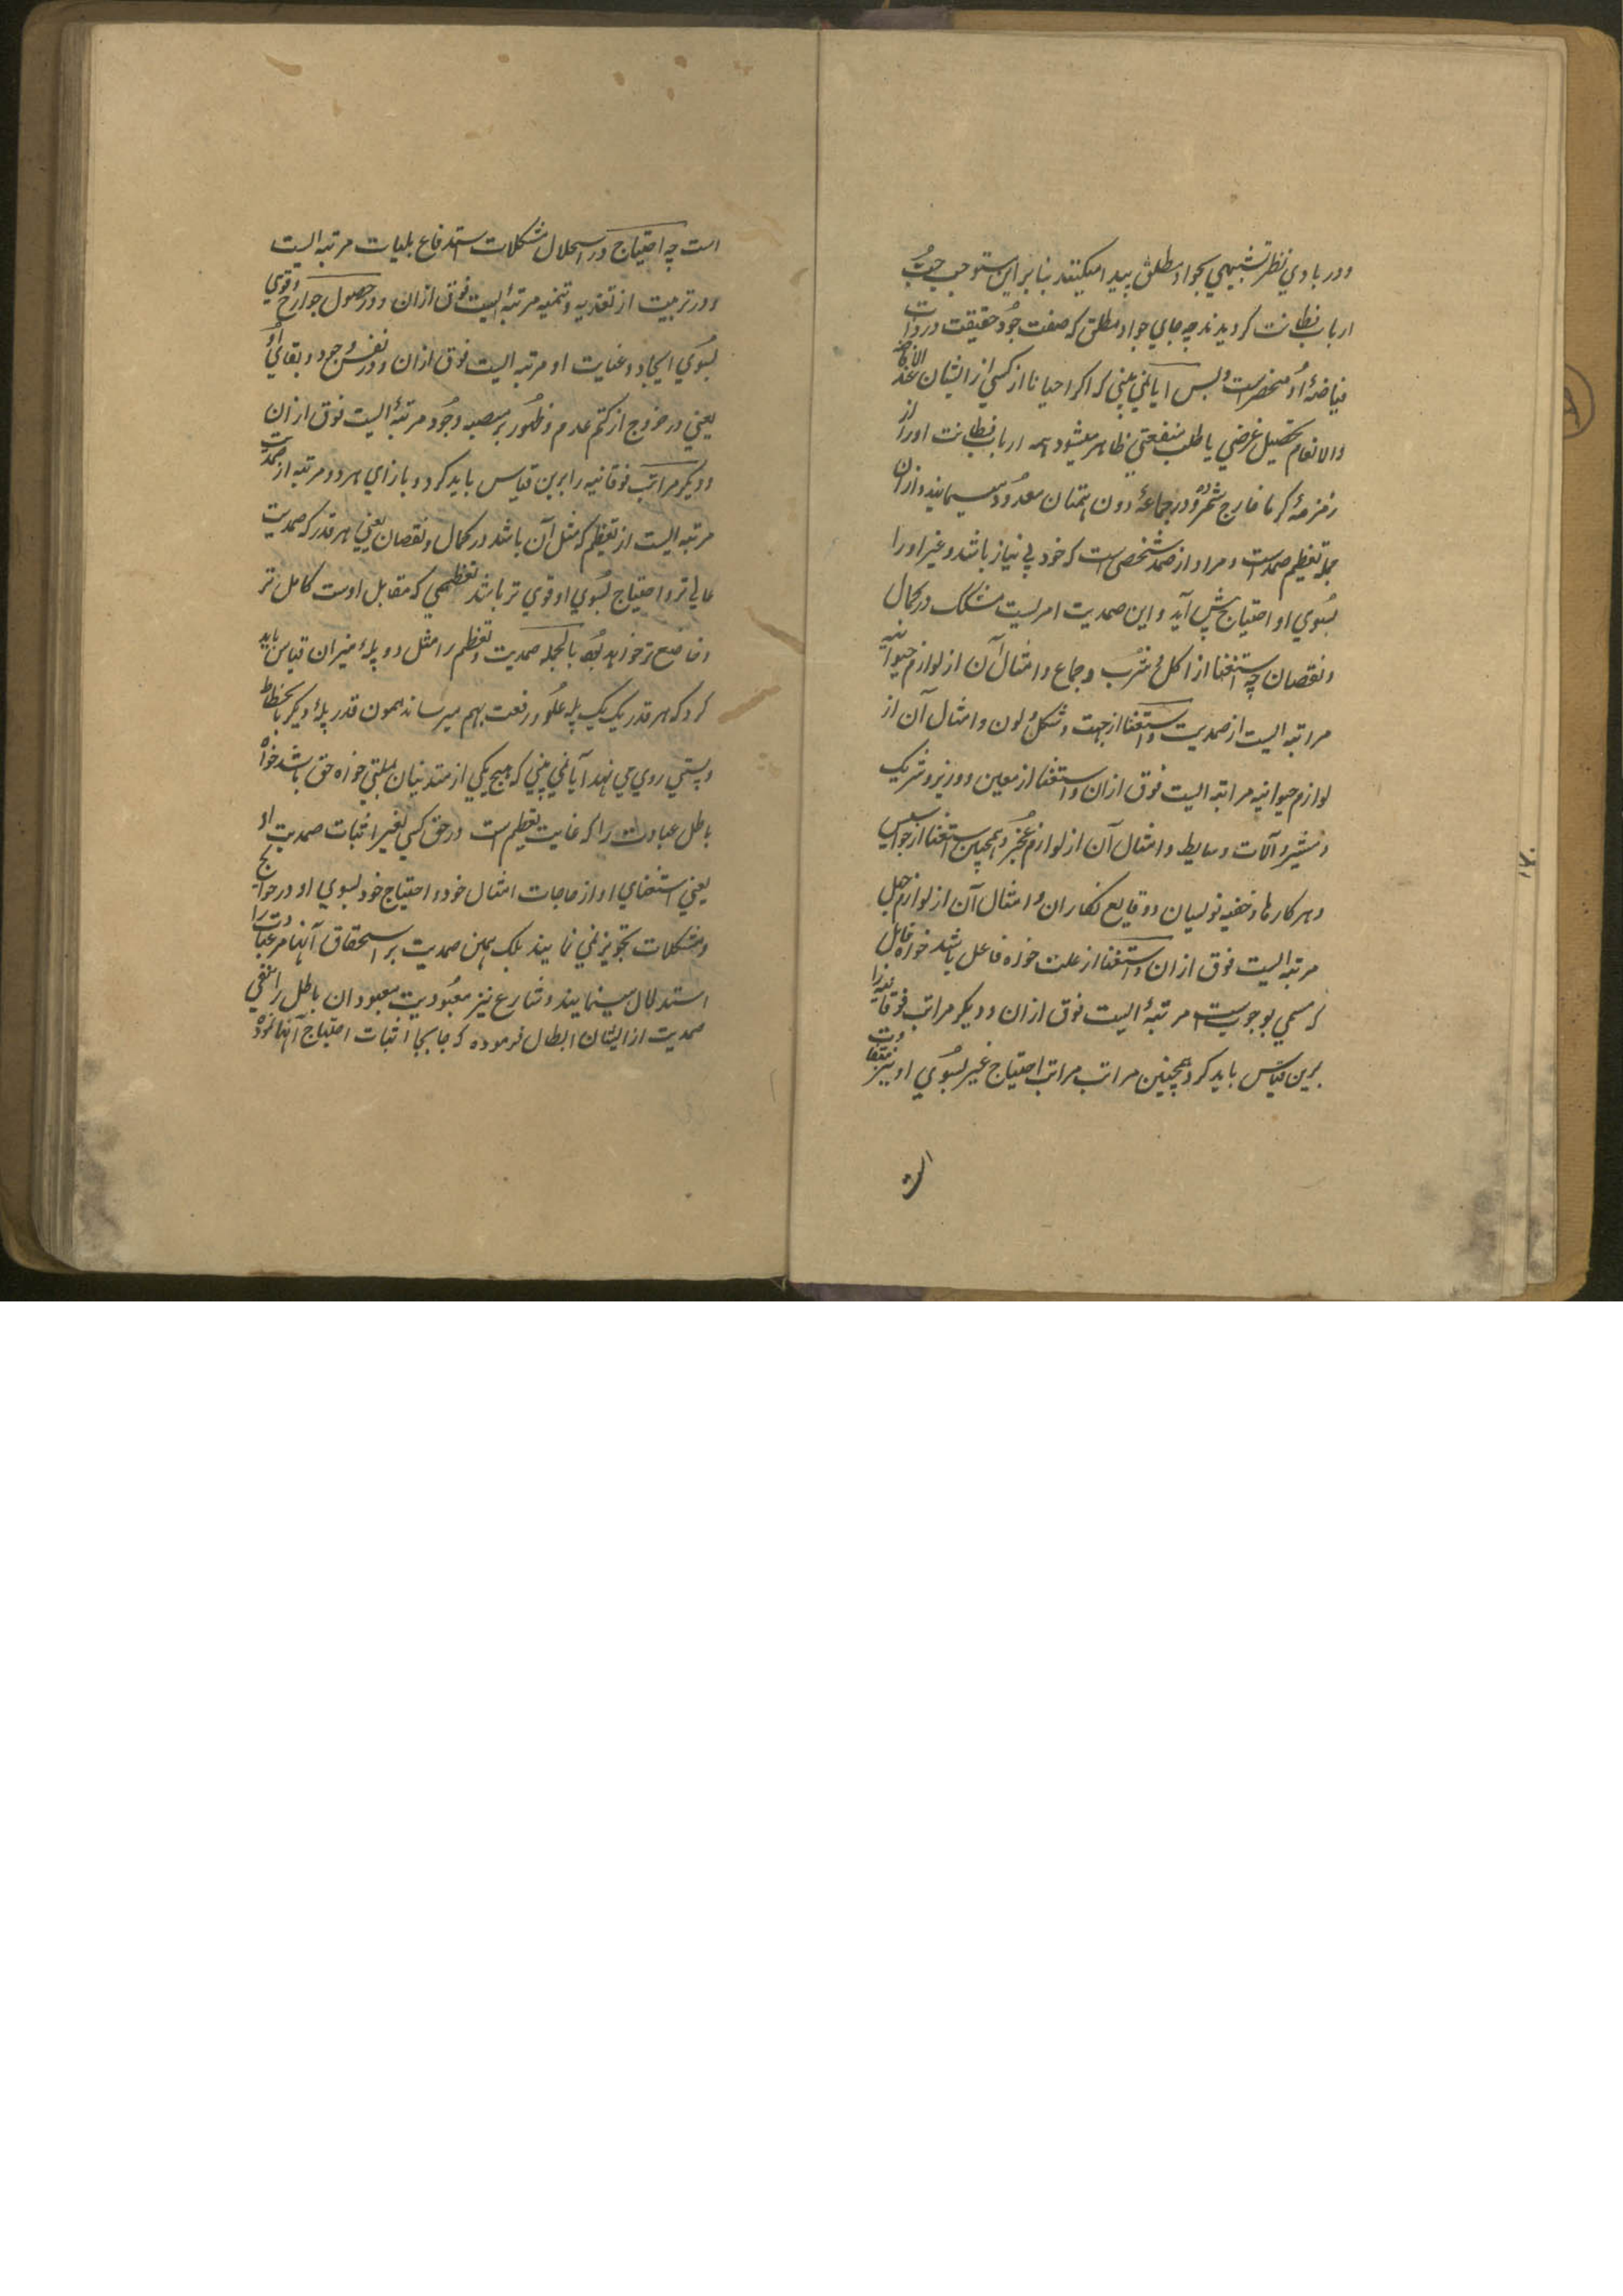 ودر بادي نظر تشبيهي بجواد مطلق پيدا ميكنند بنا براين مستوجب حب
ارباب فطانت كرديدند چه جاي جواد مطلق كه صفت جود حقيقت در ذات
فياضهٔ او منحصر است و بس آيا نمي بيني كه اكر احيانا از كسي از ايشان عند الافاضه
والانعام تحصيل غرضي يا طلب منفعتي ظاهر ميشود همه ارباب فطانت او را از
زمرهٔ كرما خارج شمرده در جماعهٔ دون همتان معدود مينمايند و ازان
جمله تعظيم صمد است و مراد از صمد شخصي است كه خود بي نياز باشد و غير او را
بسوي او احتياج پيش آيد و اين صمديت امريست مشكك در كمال
و نقصان چه استغنا از اكل و شرب و جماع و امثال آن از لوازم حيوانيه
مراتبه ايست از صمديت و استغنا از جهت و شكل و لون و امثال آن از
لوازم حيوانيه مراتبه ايست فوق ازان و استغنا از معين و وزير و شريك
و مشير و آلات و سايط و امثال آن از لوازم عجز و همچنين استغنا از جواسيس
و هركارها و خفيه نويسان و وقايع نكاران و امثال آن از لوازم جهل
مرتبه ايست فوق ازان و استغنا از علت خواه فاعل باشد خواه قابل
كه مسمي بوجوب است مرتبهٔ ايست فوق ازان و ديكر مراتب فوقانيه را
برين قياس بايد كرد و همچنين مراتب مراتب احتياج غير بسوي او نيز متفاوت
است
است چه احتياج در استحلال مشكلات و استدفاع بليات مرتبه ايست
و در تربيت از تغذيه و تنميه مرتبهٔ ايست فوق ازان و در حصول جوارح و قوي
بسوي ايجاد و عنايت او مرتبه ايست فوق ازان و در نفس وجود و بقاي او
يعني در خروج از كتم عدم و ظهور بر منصهٔ وجود مرتبهٔ ايست فوق ازان
و ديكر مراتب فوقانيه را برين قياس بايد كرد و بازاي هر دو مرتبه از صمديت
مرتبه ايست از تعظيم كه مثل آن باشد در كمال و نقصان يعني هر قدر كه صمديت
عالي تر و احتياج بسوي او قوي تر باشد تعظيمي كه مقابل اوست كامل تر
و خاضع تر خواهد بود بالجمله صمديت و تعظيم را مثل دو پلهٔ ميزان قياس بايد
كرد كه هر قدر يك يك پله علو و رفعت بهم ميرساند همون قدر پلهٔ ديكر بانحطاط
و پستي روي مي نهد آيا نمي بيني كه هيچ يكي از متدينان بملتي خواه حق باشد خواه
باطل عبادت را كه غايت تعظيم است در حق كسي بغير اثبات صمديت او
يعني استغناي او از حاجات امثال خود و احتياج خود بسوي او در حوائج
و مشكلات تجويز نمي نمايند بلك بهمين صمديت بر استحقاق آنها مر عبادت را
استدلال مينمايند و شارع نيز معبوديت معبودان باطل را بنفي
صمديت از ايشان ابطال فرموده كه جا بجا اثبات احتياج آنها نموده